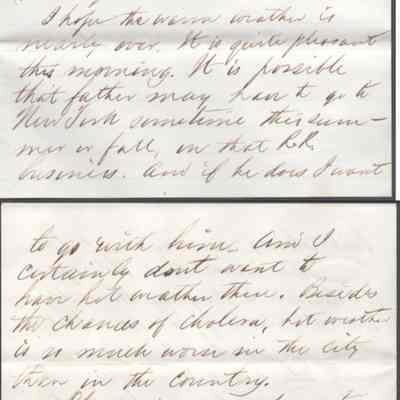 I hope the warm weather is
nearly over. It is quite pleasant
this morning. It is possible
that father may have to go to
New York sometime this sum-
mer or fall, on that R.R.
business. And if he does I want
to go with him. And I
certainly dont want to
have hot weather then. Besides
the chances of cholera, hot weather
is so much worse in the city
than in the country.